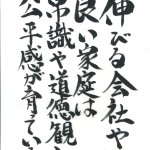 伸びる会社や
良い家庭は
常識や道徳観、
公平感が育てい